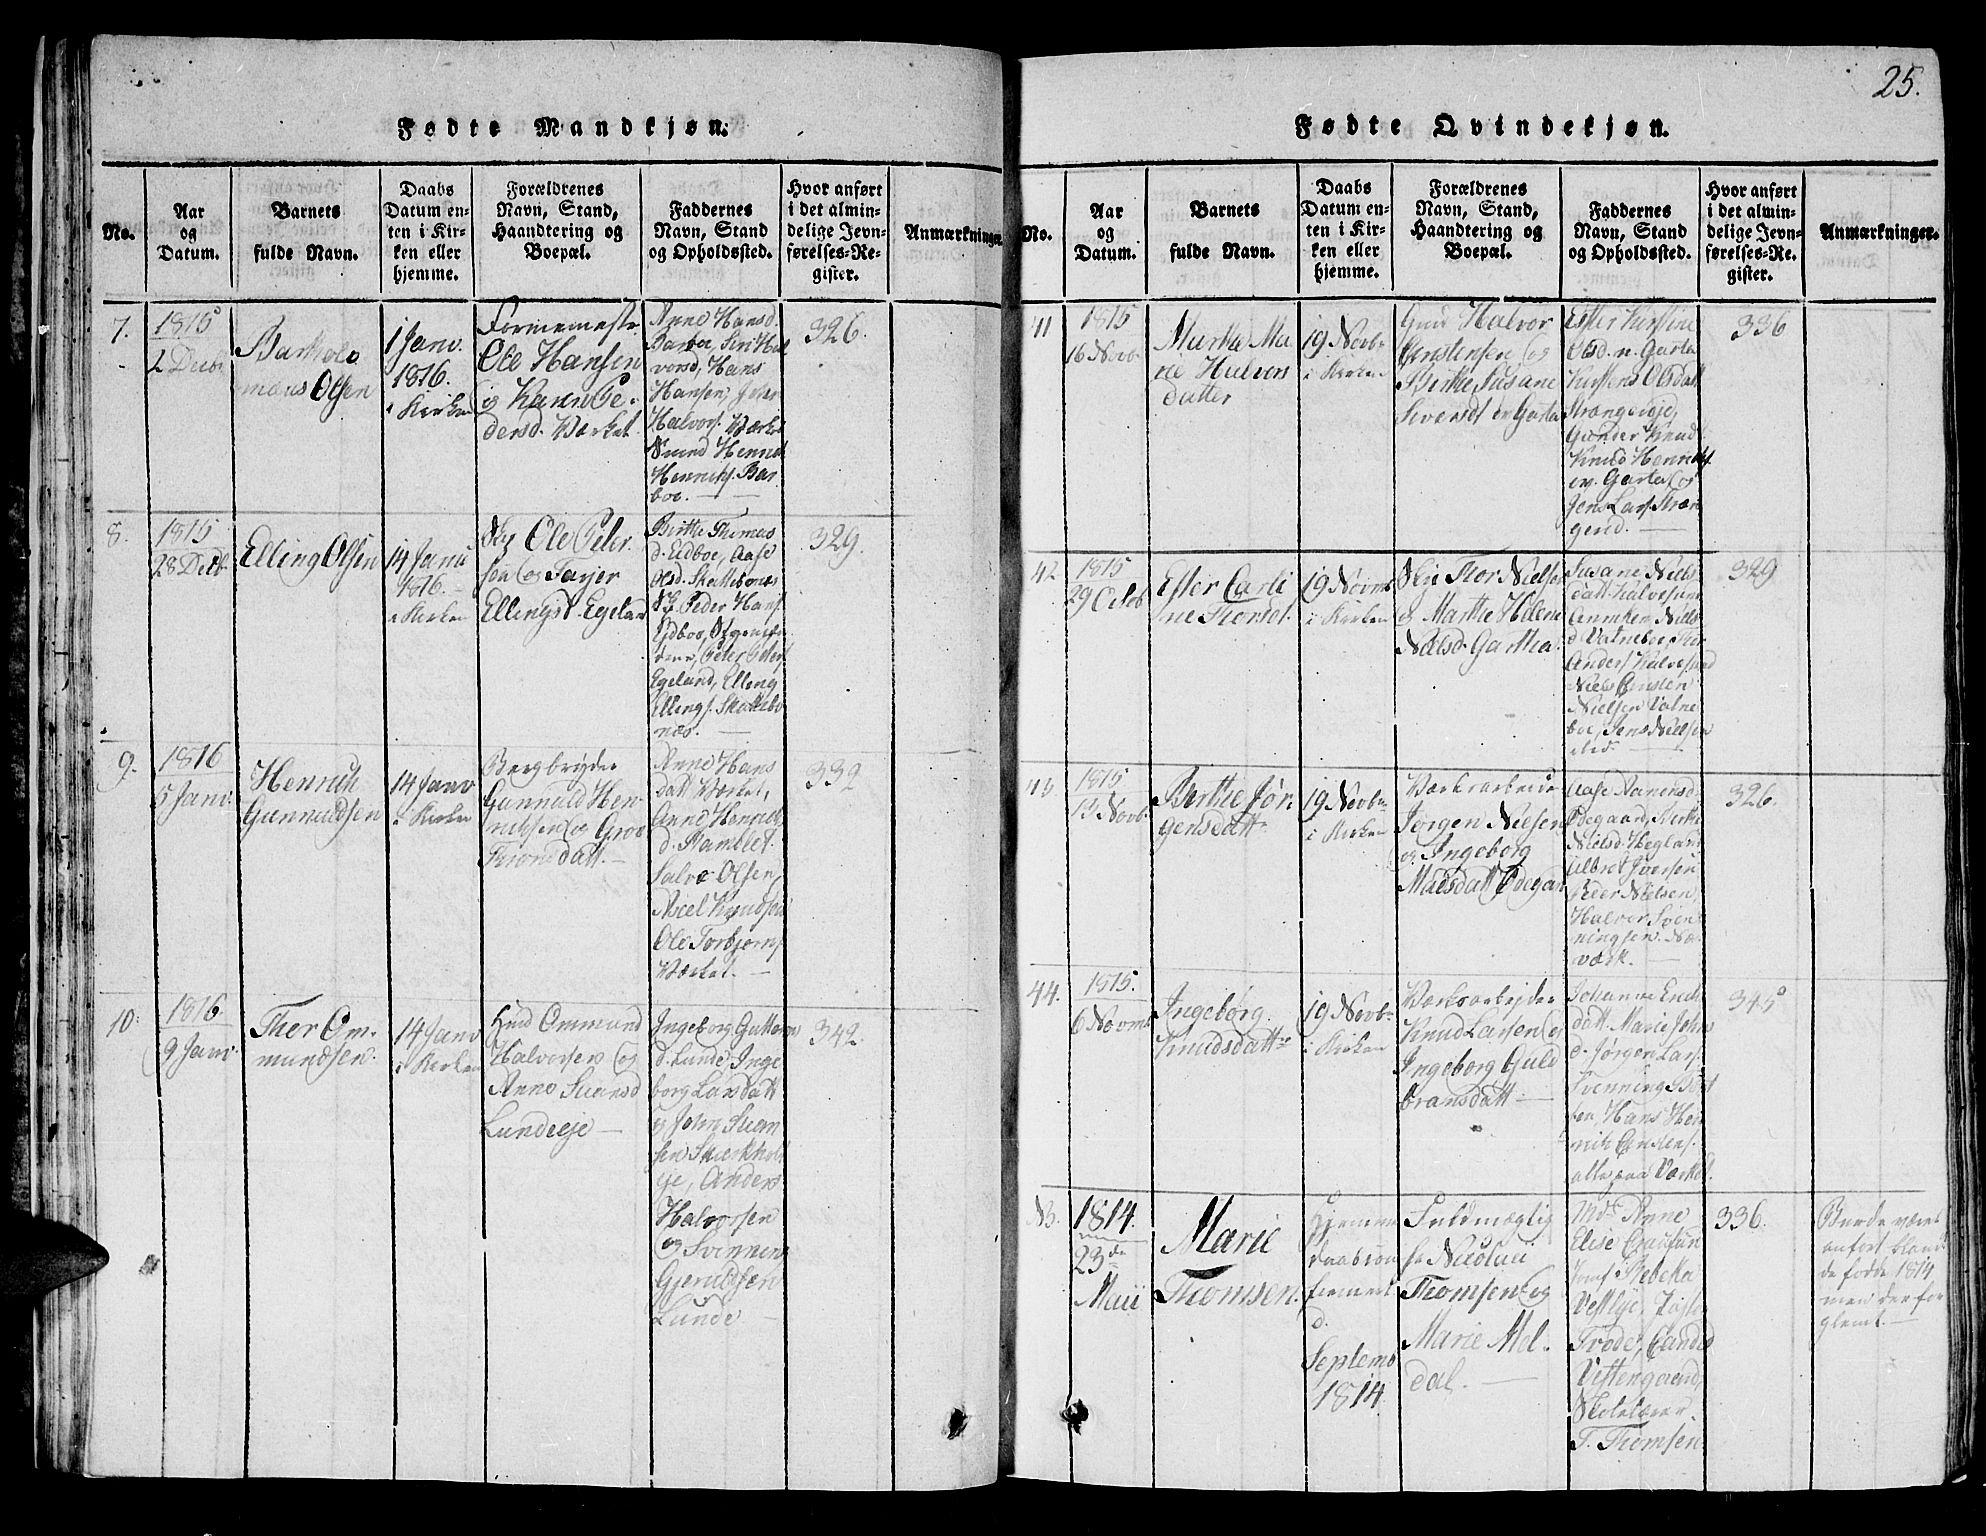 25.
Fødte Mandkjøn.
No.
Aar
og
Datum.
Barnets
fulde Navn.
Daabs
Datum en-
ten i Kir-
ken eller
hjemme.
Forældrenes
Navn, Stand,
Haandtering og
Boepæl.
Faddernes
Navn, Stand
og Opholdssted.
Hvor anført
i det almin-
delige Jevn-
førelses-Re-
gister.
Anmærkninger.
7.
1815
2 Decbr
Bartholo
mæus Olsen
1 Janv.
1816.
i Kirken
Formemester
Ole Hansen
og Karen Pe-
dersd. Værket
Anne Hansd.
Barboe, Siri Hal
vorsd, Hans
Hansen, Jens
Halvors. Værket
Svend Henrik
Henrichs. Bar
boe.
326.
8.
1815
28 Decb.
Elling Olsen
14 Janv
1816.
i Kirken
Ole Peter
sen og Tarjer
Ellingsd. Egeland
Birtte Thomas
d. Eidboe, Aase
Olsd. Skattebonæs
Peder Hans.
Eidboe,
Peter Peters.
Egeland, Elling
Ellings. Skattebo
næs.
329.
9.
1816
5 Janv.
Henrich
Gunnuldsen
14 Janv
i Kirken
Bergbryder
Gunnuld Hen-
richsen og Groe
Thronsdatt.
Anne Hans
datt Værket,
Anne Henrich
d. Hamblet.
Salve Olsen,
Axel Knudsen
Ole Torbjørns.
Værket.
332
10.
1816.
9 Janv.
Thor Om-
mundsen.
14 Janv
i Kirken
Hmd Ommund
Halvorsen og
Anne Svensd
Lundeeje
Ingeborg Guttorm
d. Lunde, Inge
borg Larsdatt
og John Svein
sen
eje, Anders
Halvorsen
og Svenning
Gjeruldsen
Lunde
342.
Fødte Qvindekjøn.
No.
Aar
og
Datum.
Barnets
fulde Navn.
Daabs
Datum en-
ten i Kir-
ken eller
hjemme.
Forældrenes
Navn, Stand,
Haandtering og
Boepæl.
Faddernes
Navn, Stand
og Opholdssted.
Hvor anført
i det almin-
delige Jevn-
førelses-Re-
gister.
Anmærkninger.
41
1815
16 Novb
Marthe Ma
rie Halvors
datter
19 Novbr
i Kirken
Gmd Halvor
Christensen og
Birthe Susane
Siversdt. Garta
Ester Kirstine
Olsd. Garta
Kirsten Olsdatt
Strængereje,
Gunder Knud
Knud Henrichs.
Garta og
Jens Lars. Stræn
gerud.
336
42
1815
29 Octob
Ester Carli
ne Thorsd.
19 Novmb
i Kirken
Thor Nielsen
og Marthe Helene
Nielsd. Gartha.
Susane Niels
datt. Kalvesund
Anniken Niels
d. Vatneboe, Thor
Anders. Kalvesund
Niels Christen
Nielsen Vatne
boe, Jens Nielsen
ibid.
329
43
1815
13 Novb.
Berthe Jør
gensdatt
19 Novbr
i Kirken
Værksarbeider
Jørgen Nielsen
og Ingeborg
Madsdatt Ødegaard
Aase
Ødegaard, Birthe
Nielsd. Hegland
Albret Iversen
Peder Nielsen,
Halvor Sven
ningsen. Næs
værk.
326.
44.
1815.
6 Novmb
Ingeborg
Knudsdatt
19 Novbr
i Kirken
Værksarbejder
Knud Larsen og
Ingeborg Guld
bransdatt
Johanne Erich
datt. Marie John
d. Jørgen Lars.
Svenning
sen, Hans Hen
rich Christens.
alle paa Værket.
345
NB.
1814.
23de
Maii
Marie
Thomsen.
Hjemme
daab con
firmert
d.
Septemb
1814
Fuldmægtig
Hr Nicolaii
Thomsen og
Marie Mel-
dal.
Md. Anne
Elise
Jomf. Rebeka
Vestlye,
Trode,
Vestergaard,
Skolelærer
T. Thomsen
336.
Burde været
anført bland
de fødde 1814
men derfor
glemt.